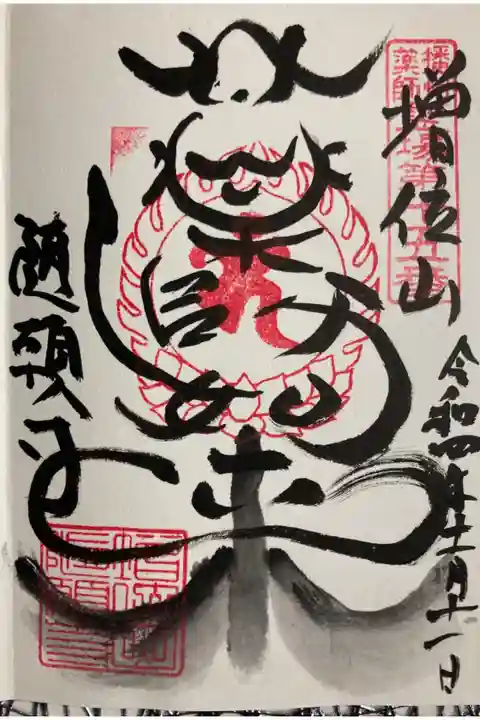 播州
薬師霊場第十五番
増位山
令和四年十一月十一日
薬師如来
随願寺